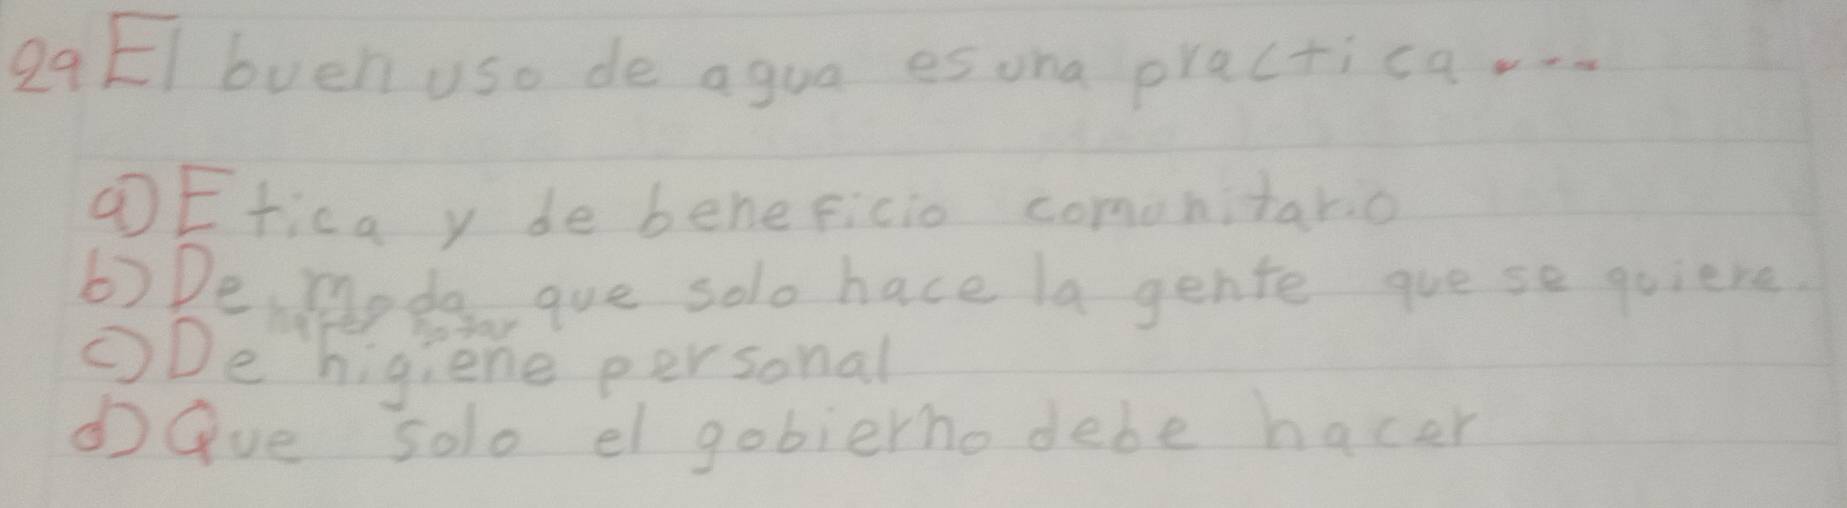 29 El buen uso de agua es una practica ....
a) Etica y de beneficio comunitario
b) De moda que solo hace la gente que se quiere.
hacer notar
c) De higiene personal
d) Que solo el gobierno debe hacer